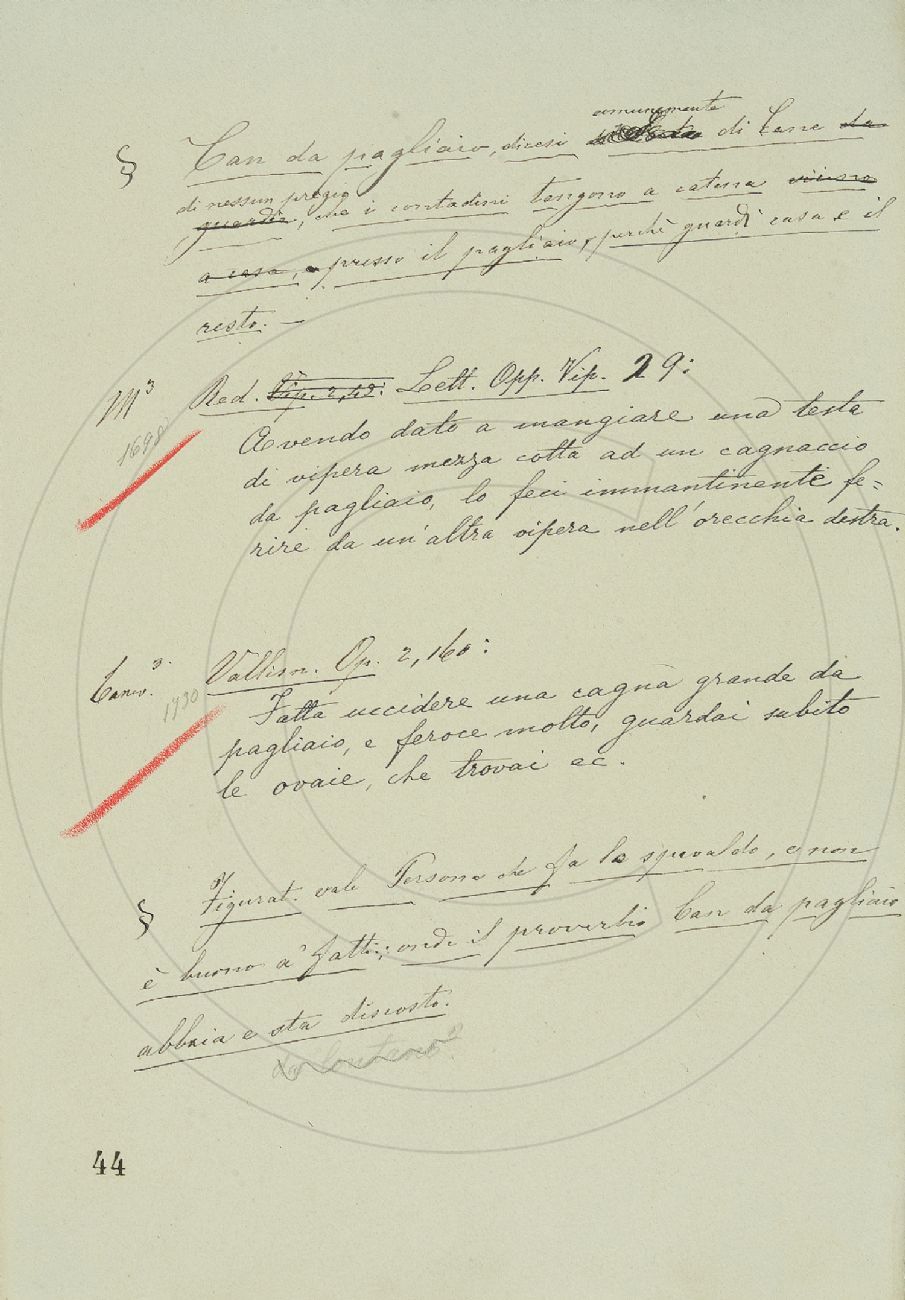 comunemente
§ Can da pagliaio, dicesi di Cane da
di nessun pregio
guardia, che i contadini tengono a catena vicino
a casa, o presso il pagliaio, perchè guardi casa e il
resto. —
M³ Red. Vip. 2, Lett. Opp. Vip. 29:
1698
Avendo dato a mangiare una testa
di vipera mezza cotta ad un cagnaccio
da pagliaio, lo feci immantinente fe=
rire da un' altra vipera nell' orecchia destra.
Vallisn. Op. 2, 160:
1730
Fatta uccidere una cagna grande da
pagliaio, e feroce molto, guardai subito
le ovaie, che trovai ec.
§ Figurat. vale Persona che fa lo spavaldo, e non
è buono a' fatti; onde il proverbio Can da pagliaio
abbaia e sta discosto.
da lontano?
44